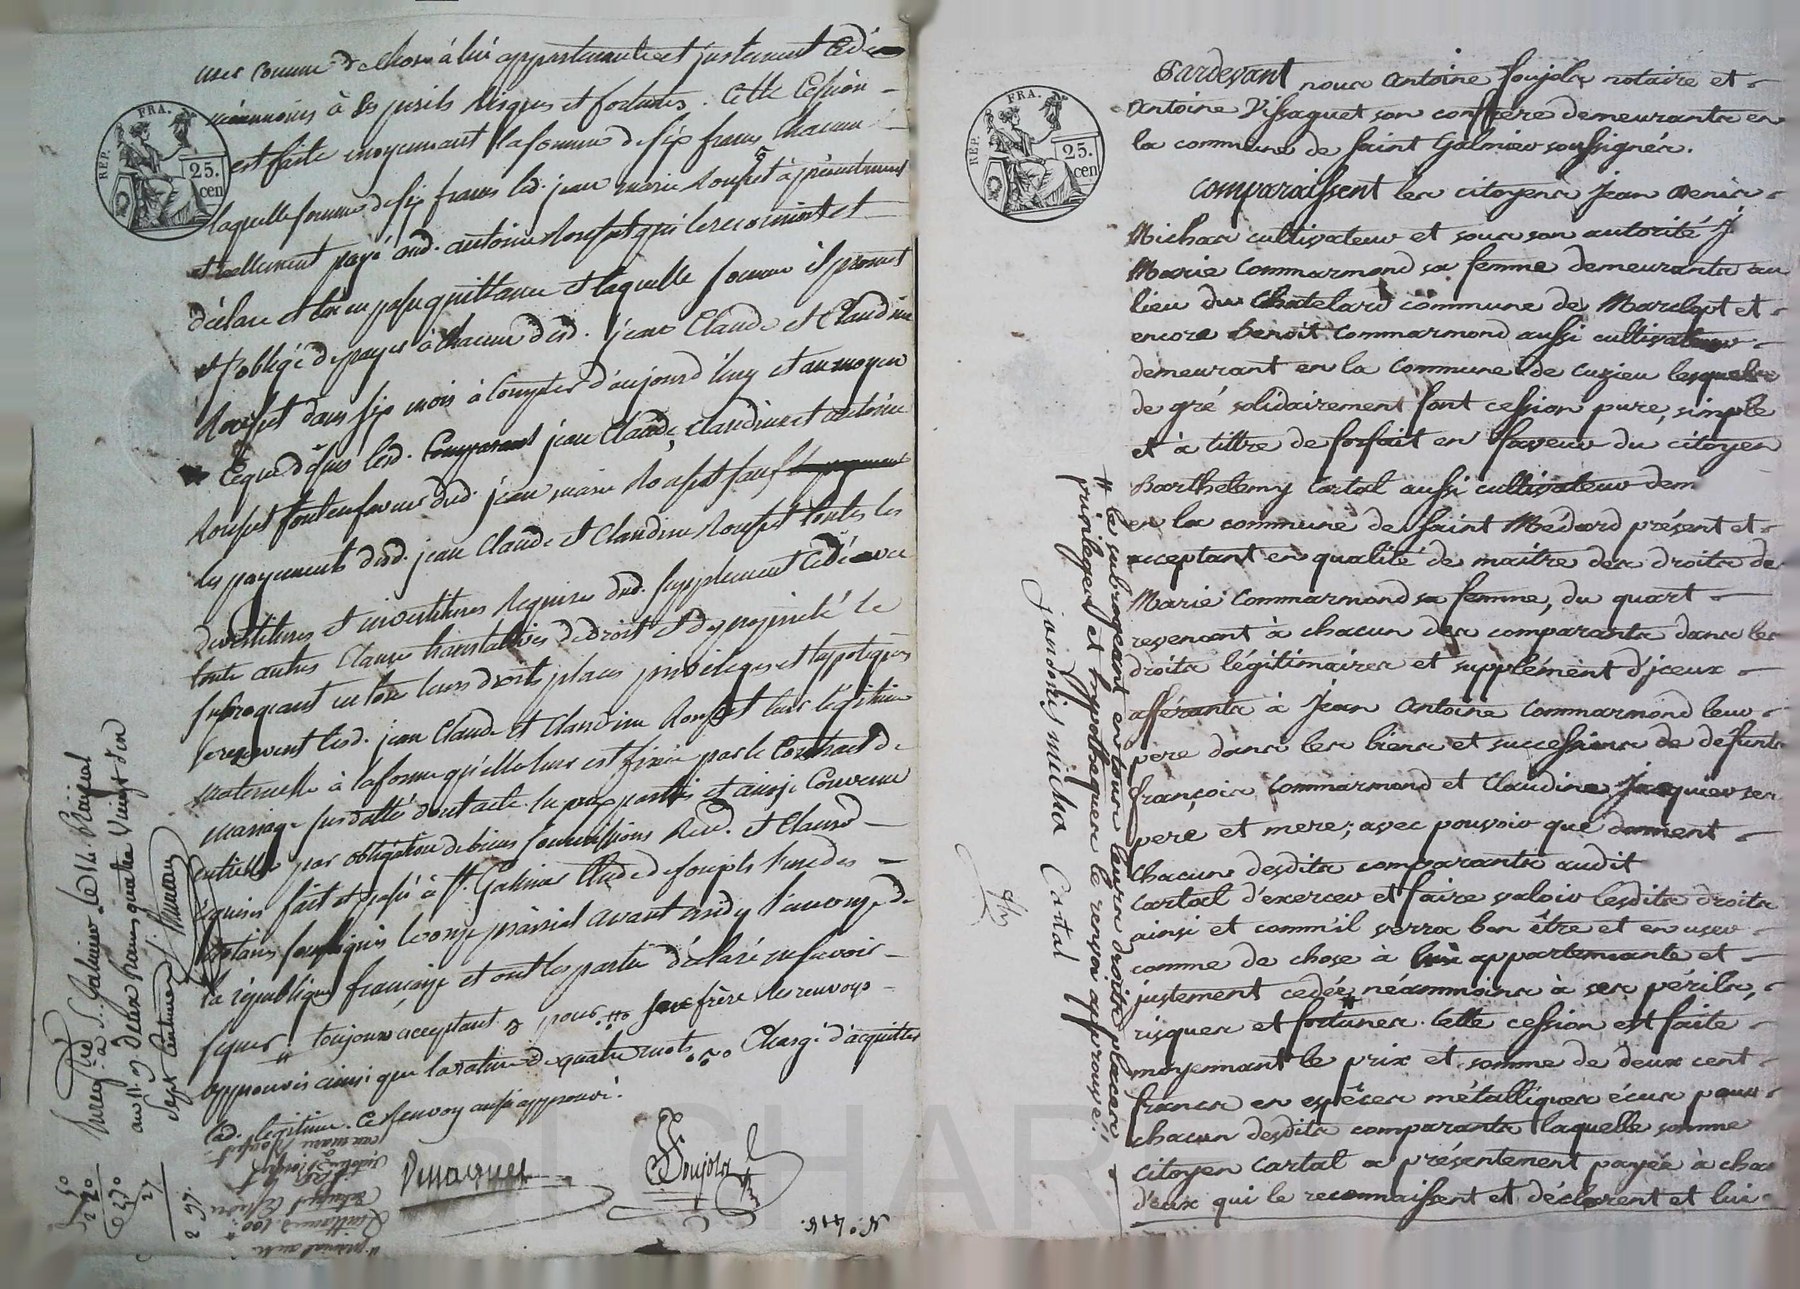 user comme de chose à lui appartenante et justement cédée
néanmoins à ses perils risques et fortunes. Cette Cession
est faite moyennant la somme de six francs chacun
laquelle somme de six francs led. jean marie Rouset à présentement
et réellement payé aud. antoine Rouset qui le reconnoit et
déclare et len en passe quittance et laquelle somme il promet
et s'oblige de payer à chacun desd. jean Claude et Claudine
Rouset dans six mois à Compter d'aujourd'huy et au moyen
Ceque dessus lesd. Comparant jean Claude, Claudine et antoine
Rouset font en faveur dud. jean marie Rouset sauf
les payements desd. jean Claude et Claudine Rouset toutes les
devestitures et investitures Requise dud. supplement Cédé avec
toute autres Clause translatives de droit et de propriété le
subrogeant en tous leurs droits places privileges et hypoteques
reservent lesd. jean Claude et Claudine Rouset leur légitime
maternelle à la forme qu'elle leur est fixée par le Contract de
mariage susdatté dont acte. lu aux parties et ainsi Convenu
entrelles par obligation de biens soumissions Ren.d. et Clauses
requises fait et passé à St. Galmier Etude de soujols l'un des
notaires soussignés le onze prairial avant midy l'an onze de
la république française et ont les partie déclaré ne savoir
signer " toujours acceptant & pour son frère les renvoys
approuvés ainsi que la rature de quatre mots Chargé d'acquitter
lad. légitime. Ce Renvoy aussi approuvé.
Vissaguet
Soujols
N° 415.
Enreg. tré à S. Galmier le 14 Prairial
an 11. reçu deux francs quatre vingt dix
sept Centimes
50
220
270
27
2 97.
REP. FRA.
25.
cen
REP. FRA.
25.
cen
Pardevant nous Antoine Soujols notaire et
Antoine Vissaguet son confrère demeurants en
la commune de Saint Galmier soussignés.
Comparaissent les citoyens Jean Denis
Michas cultivateur et sous son autorité
Marie Commarmond sa femme demeurants au
lieu du Chatelard commune de Marclopt et
encore Benoit Commarmond aussi cultivateur
demeurant en la Commune de Cuzieu lesquels
de gré solidairement font cession pure, simple
et à tittre de forfait en faveur du citoyen
Barthelemy Cartal aussi cultivateur dem
en la commune de Saint Medard présent et
acceptant en qualité de maitre des droits de
Marie Commarmond sa femme, du quart
revenant à chacun des comparants dans les
droits légitimaires et supplément d'iceux
afférants à Jean Antoine Commarmond leur
pere dans les biens et successions de défunts
françois Commarmond et Claudine Jacquier ses
pere et mere; avec pouvoir que donnent
Chacuns desdits comparants audit
Cartal d'exercer et faire valoir lesdits droits
ainsi et comm'il verra bon être et en user
comme de chose à lui appartenante et
justement cedée, néammoins à ses périls,
risques et fortunes. Cette cession est faite
moyennant le prix et somme de deux cent
francs en espéces métalliques écus pour
chacun desdits comparants laquelle somme
citoyen Cartal a présentement payée à chac
d'eux qui le reconnaissent et déclarent et lui
" le subrogeant en tous leurs droits places
privileges et hypotheques le renvoi approuvé. "
jan denis micha Cartal